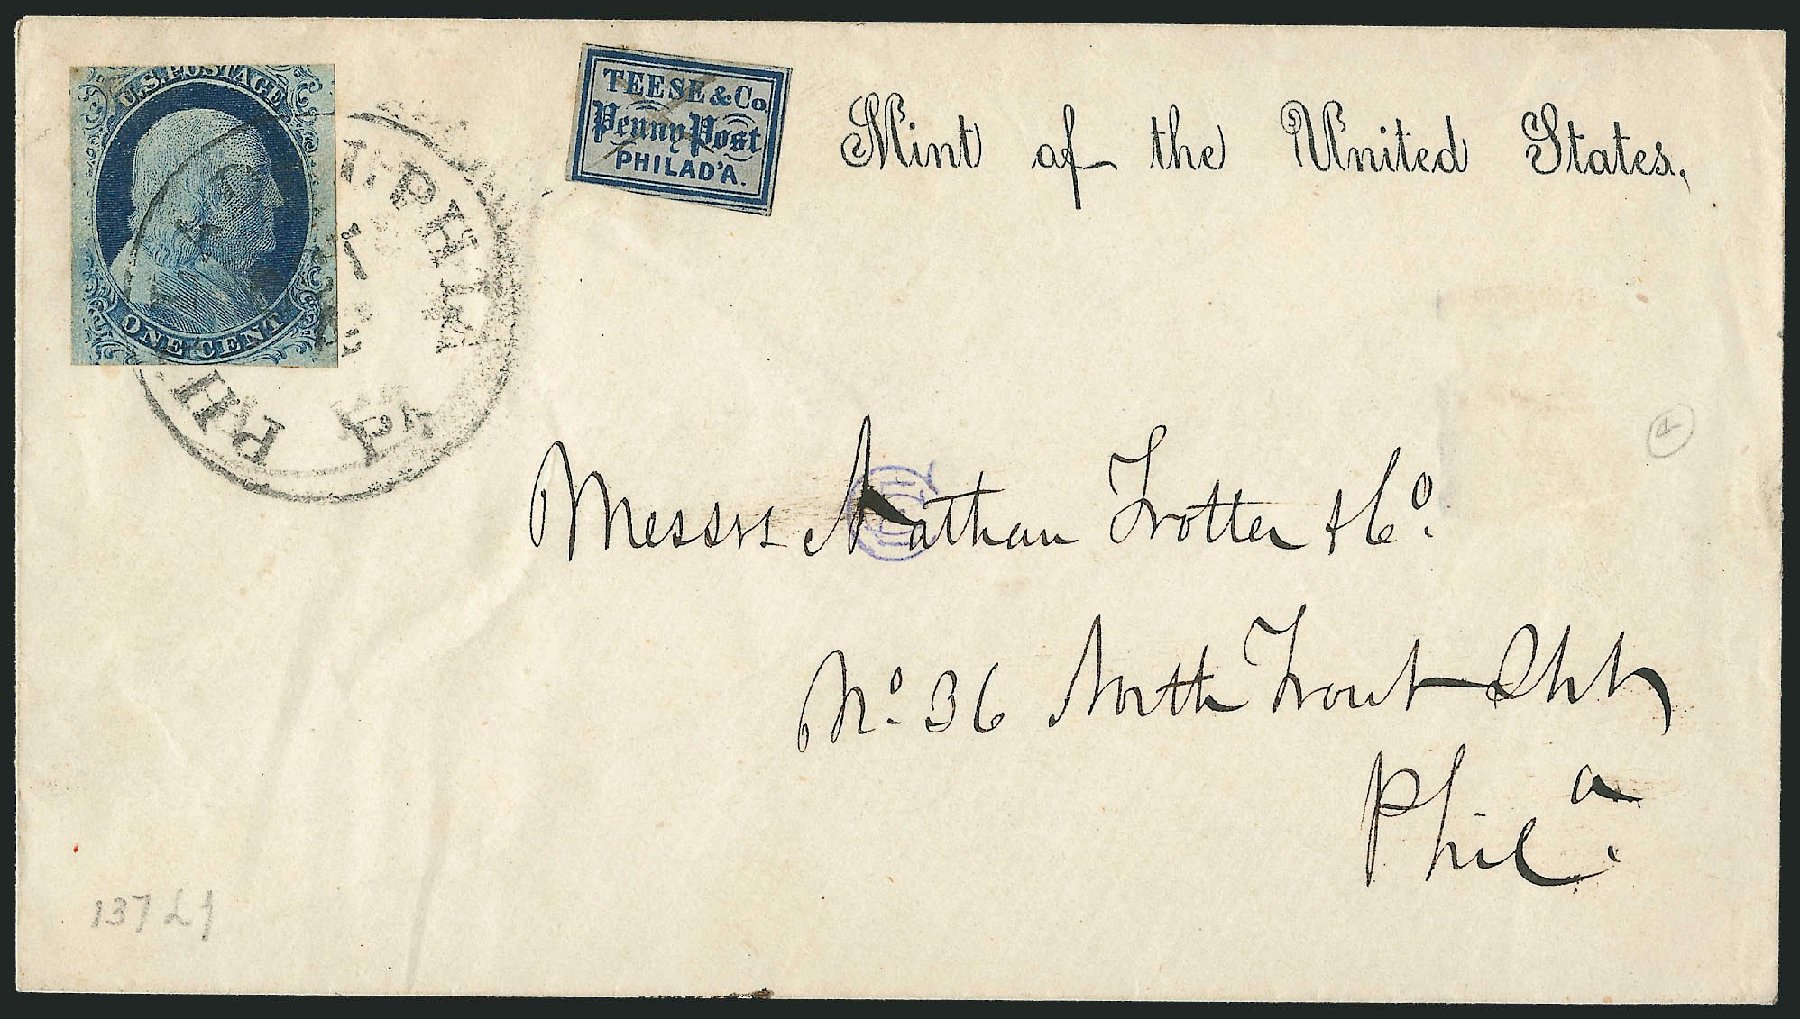 U.S. POSTAGE
ONE CENT
TEESE & Co.
Penny Post
PHILAD'A.
Mint of the United States.
PHILADELPHIA
Pa
Messrs Nathan Trotter & Co.
No. 36 North Front
Phila.
137L1